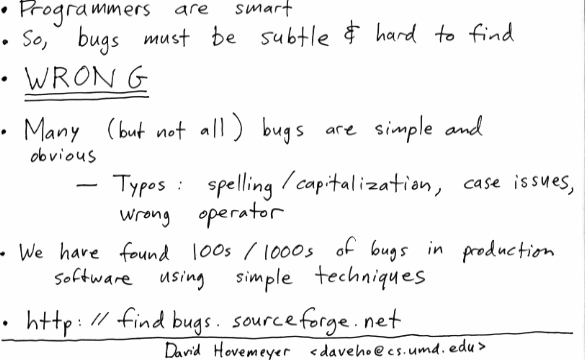 • Programmers are smart
• So, bugs must be subtle & hard to find
• WRONG
• Many (but not all) bugs are simple and
obvious
— Typos: spelling/capitalization, case issues,
wrong operator
• We have found 100s/1000s of bugs in production
software using simple techniques
• http://findbugs.sourceforge.net
David Hovemeyer <daveho@cs.umd.edu>